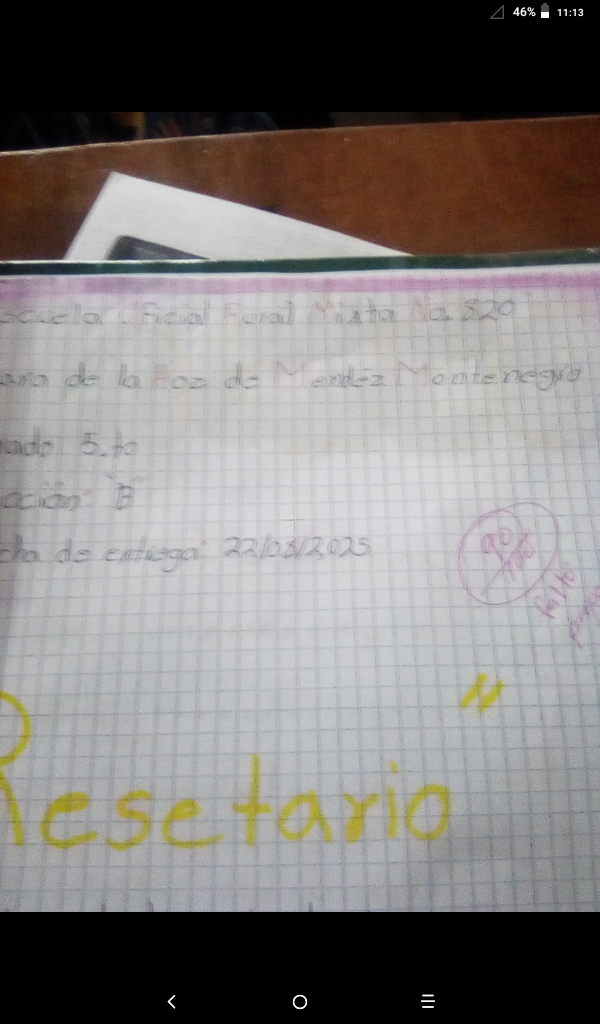 46% 11:13
scuela Oficial Rural Mixta No. 820
ara de la Hoz de Mendéz Montenegro
rado 5.to
cción "B"
cha de entrega: 22/03/2,025
90/100
falto
"
Resetario